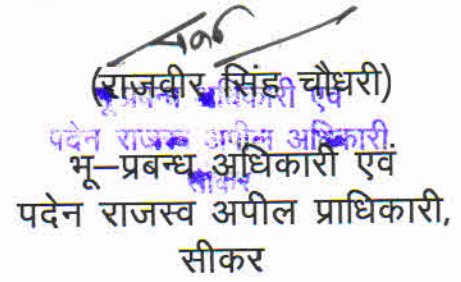 (राजवीर सिंह चौधरी)
भू-प्रबन्ध अधिकारी एवं
पदेन राजस्व अपील अधिकारी
सीकर
भू–प्रबन्ध अधिकारी एवं
पदेन राजस्व अपील प्राधिकारी,
सीकर